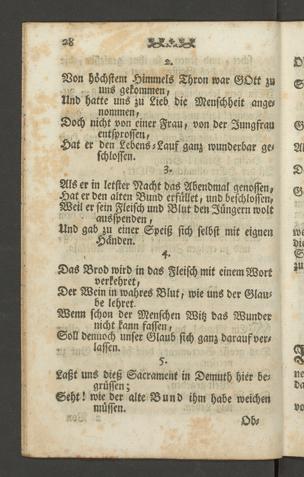 28
2.
Von höchstem Himmels Thron war GOtt zu
uns gekommen,
Und hatte uns zu Lieb die Menschheit ange-
nommen,
Doch nicht von einer Frau, von der Jungfrau
entsprossen,
Hat er den Lebens-Lauf ganz wunderbar ge-
schlossen.
3.
Als er in letster Nacht das Abendmal genossen,
Hat er den alten Bund erfüllet, und beschlossen,
Weil er sein Fleisch und Blut den Jüngern wolt
ausspenden,
Und gab zu einer Speiß sich selbst mit eignen
Händen.
4.
Das Brod wird in das Fleisch mit einem Wort
verkehret,
Der Wein in wahres Blut, wie uns der Glau-
be lehret.
Wenn schon der Menschen Witz das Wunder
nicht kann fassen,
Soll dennoch unser Glaub sich ganz darauf ver-
lassen.
5.
Laßt uns dieß Sacrament in Demuth hier be-
grüssen;
Seht! wie der alte Bund ihm habe weichen
müssen.
Ob-